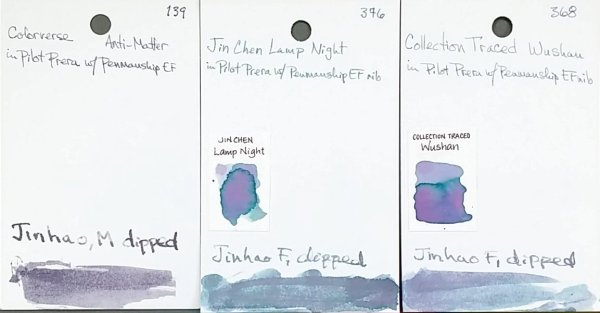 139
Colorverse Anti-Matter
in Pilot Prera w/ Penmanship EF
Jinhao, M dipped
376
Jin Chen Lamp Night
in Pilot Prera w/ Penmanship EF nib
JIN CHEN
Lamp Night
Jinhao F, dipped
368
Collection Traced Wushan
in Pilot Prera w/ Penmanship EF nib
COLLECTION TRACED
Wushan
Jinhao F, dipped